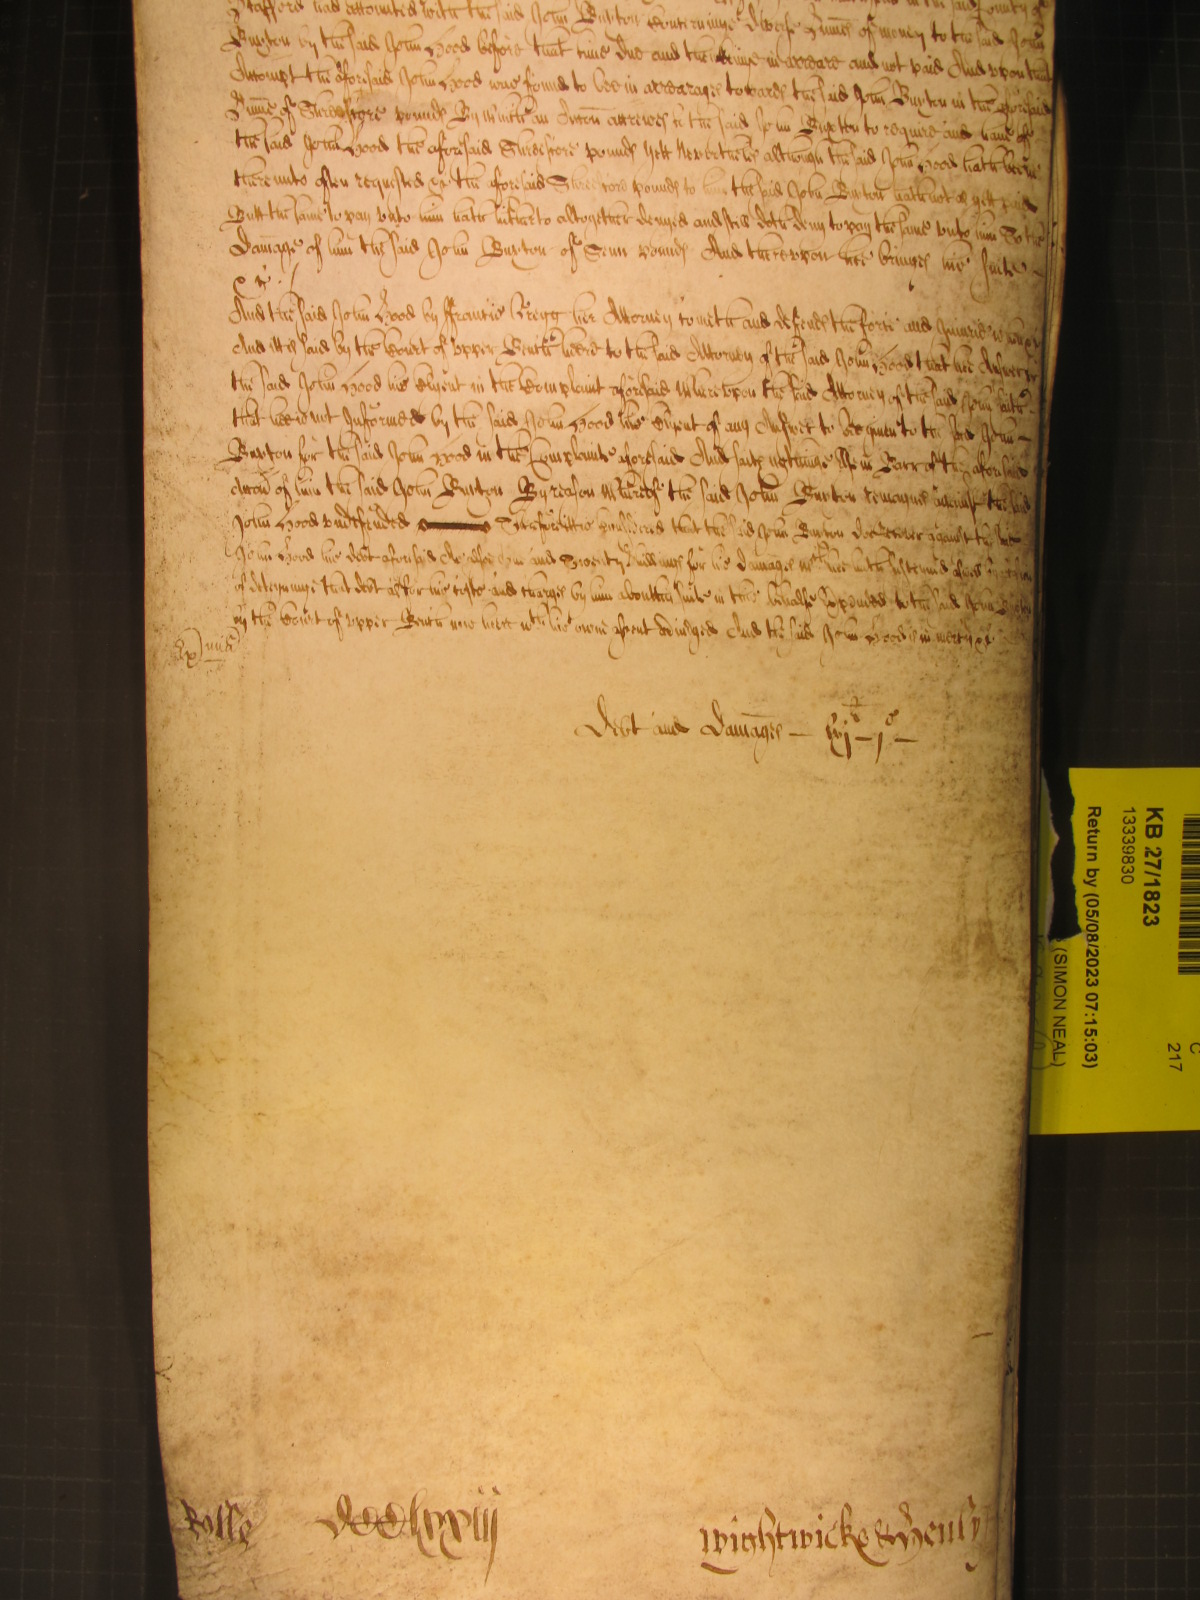 Stafford had accounted with the said John Buxton concerninge diverse Summes of money to the said John
Buxton by the said John Hood before that time due and then beinge in arreare and not paid And upon that
Accompt the aforesaid John Hood was found to bee in arrearages towards the said John Buxton in the aforesaid
Summe of Threescore pounds By which an Accon accrewed to the said John Buxton to require and have of
the said John Hood the aforesaid Threescore pounds Yett Neverthelesse although the said John Hood hath beene
thereunto often requested the aforesaid Threescore pounds to him the said John Buxton hath not as yett paid
Butt the same to pay unto him hath hitherto altogether denyed and still doth deny to pay the same unto him To the
Damage of him the said John Buxton of Tenn pounds And thereupon hee bringes his suite
&c /
And the said John Hood by Ffrancis Gregg his Attorney cometh and defends the force and Injurie when &c
And itt is said by the Court of Upper Bench heere to the said Attorney of the said John Hood that hee Answer for
the said John Hood his Clyent in the Complaint aforesaid Whereupon the said Attorney of the said John saith
that hee is not Informed by the said John Hood his Clyent of any Answer to bee given to the said John
Buxton for the said John Hood in the Complainte aforesaid And saith nothinge else in Barr of the aforesaid
Accon of him the said John Buxton By reason whereof the said John Buxton remaynes against the said
John Hood undefended Therefore itt is considered that the said John Buxton doe recover against the said
John Hood his debt aforesaid And alsoe One and Twenty shillings for his damages which hee hath susteined aswell by occasion
of deteyninge that debt as for his costs and charges by him about his suite in this behalfe expended to the said John Buxton
by the Court of Upper Bench now heere with his owne assent adiudged And the said John Hood is in mercy &c
Debt and Damages — lxj — j —
Rolle
DCCClxxiij
Wightwicke &
KB 27/1823
13339830
Return by (05/08/2023 07:15:03)
(SIMON NEAL)
C
217